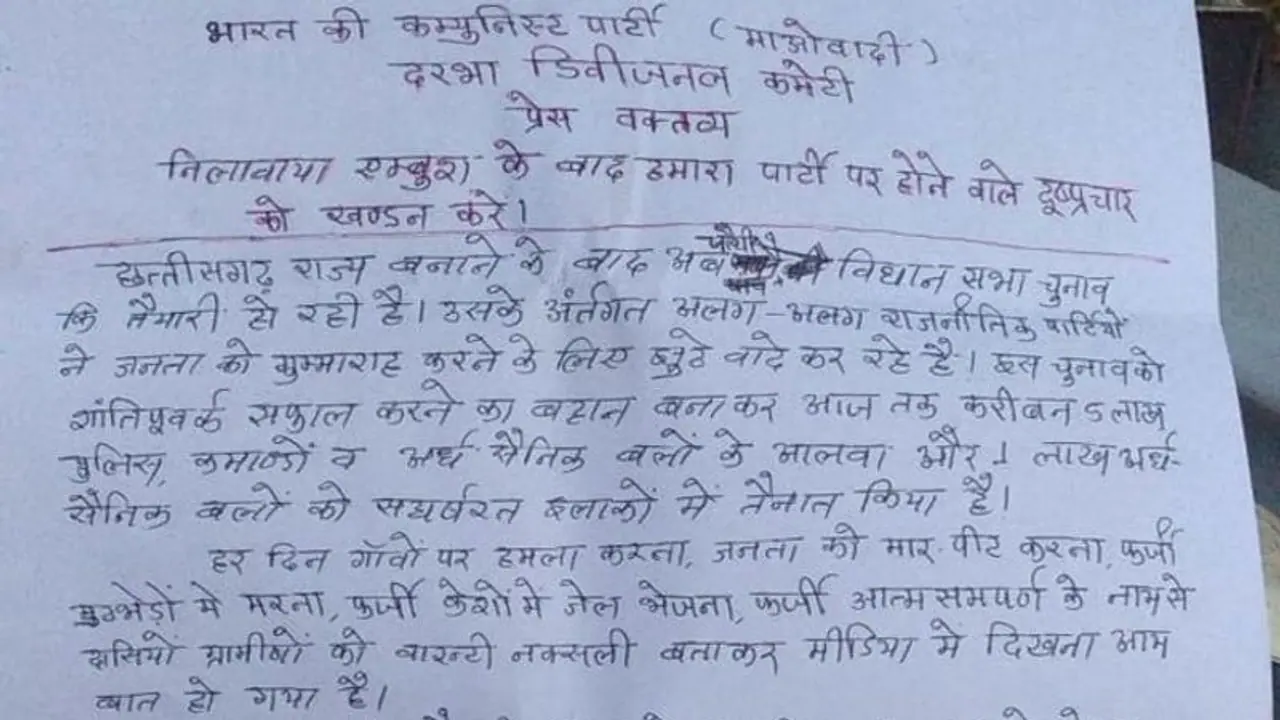 भारत की कम्युनिस्ट पार्टी (माओवादी)
दरभा डिवीजनल कमेटी
प्रेस वक्तव्य
निलावाया एम्बुश के बाद हमारा पार्टी पर होने वाले दूष्प्रचार
को खण्डन करे।
छत्तीसगढ़ राज्य बनाने के बाद अब विधान सभा चुनाव
कि तैयारी हो रही है। उसके अंर्तगत अलग-अलग राजनीतिक पार्टियों
ने जनता को गुम्माराह करने के लिए झुठे वादे कर रहे है। इस चुनाव को
शांतिपूवर्क सफाल करने का बहान बनाकर आज तक करीबन 5 लाख
पुलिस, कमाण्डों व अर्ध सैनिक बलों के आलवा और 1 लाख अर्ध-
सैनिक बलों को संघर्षरत इलाकों में तैनात किया है।
हर दिन गॉवों पर हमला करना, जनता को मार-पीट करना, फर्जी
मुठभेड़ों मे मरना, फर्जी केशों मे जेल भेजना, फर्जी आत्मसमपर्ण के नाम से
ग्रामीणों को वारन्टी नक्सली बताकर मीडिया में दिखना आम
बात हो गया है।